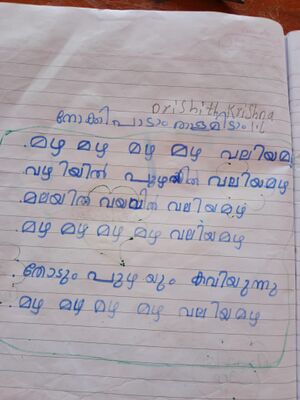 Drishith Krishna
നോക്കി പാടാം താളമിടാം 1.L
. മഴ മഴ മഴ മഴ വലിയമ
വഴിയിൽ പുഴയിൽ വലിയമഴ
. മലയിൽ വയലിൽ വലിയമഴ
. മഴ മഴ മഴ മഴ വലിയമഴ
. തോടും പുഴയും കവിയുന്നു
. മഴ മഴ മഴ മഴ വലിയമഴ